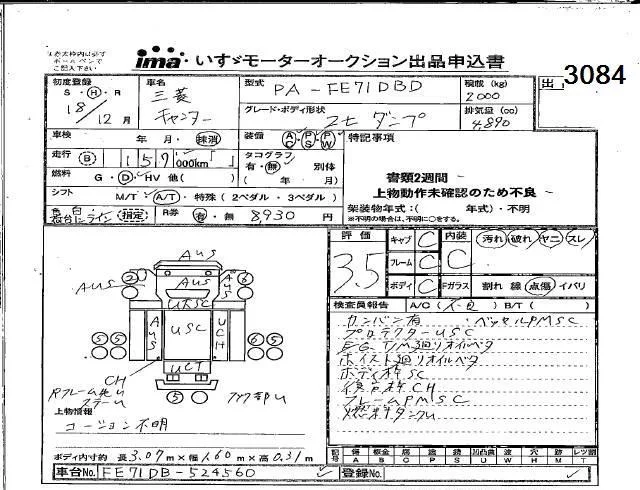 太枠内に必ず
ボールペンで
ご記入下さい
ima いすゞモーターオークション出品申込書
出 3084
初度登録 S・H・R 18/12月
車名 三菱 キャンター
型式 PA-FE71DBD
積載(kg) 2000
グレード・ボディ形状 2t ダンプ
排気量(cc) 4,890
車検 年 月・抹消
装備 AC PS PW
特記事項
走行 B 159 000km
タコグラフ 有・無 別体 ( 年 月)
書類2週間
上物動作未確認のため不良
燃料 G・D・HV 他( )
シフト M/T・A/T・特殊(2ペダル・3ペダル)
架装物年式:( 年式)・不明
※不明の場合は、不明に○をする。
白 ライン 指定 R券 有・無 8,930円
評価 3.5
キャブ C 内装 C 汚れ・破れ・ヤニ・スレ
フレーム C
ボディ C Fガラス 割れ 線 点傷 イバリ
検査員報告 A/C(不良) B/T( )
カンバン有 ・ベッセルPMSC
プロテクターUSC
EG、T/M廻りオイルベタ
ホイスト廻りオイルベタ
ボディ枠SC
後台枠CH
フレームPMSC
燃料タンクU
AUS
AUS 2 AUS AUS 6
USC
AUS USC UCH
5 5 5 5
UCT
CH
5
Rフレーム
上物情報
コーション不明
ボディ内寸 約 長3.07m×幅1.60m×高0.31m
記号 傷 A 板金 B 腐 C 塗 P 凹 U 波 W 穴 H 跡 M レツ割 T
車台No. FE71DB-524560
登録No.